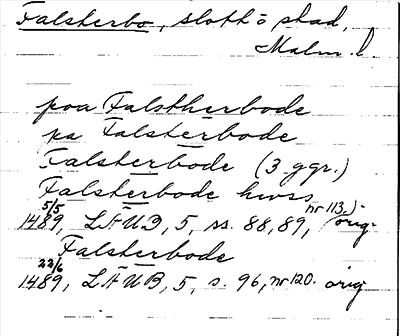 Falsterbo, slott o stad,
Malm. l.
poa Falstherbode
pa Falsterbode
Falsterbode (3 ggr.)
Falsterbode hwss
5/5 nr 113.)
1489, LÄUB, 5, ss. 88, 89, orig.
Falsterbode
22/6
1489, LÄUB, 5, s. 96, nr 120. orig